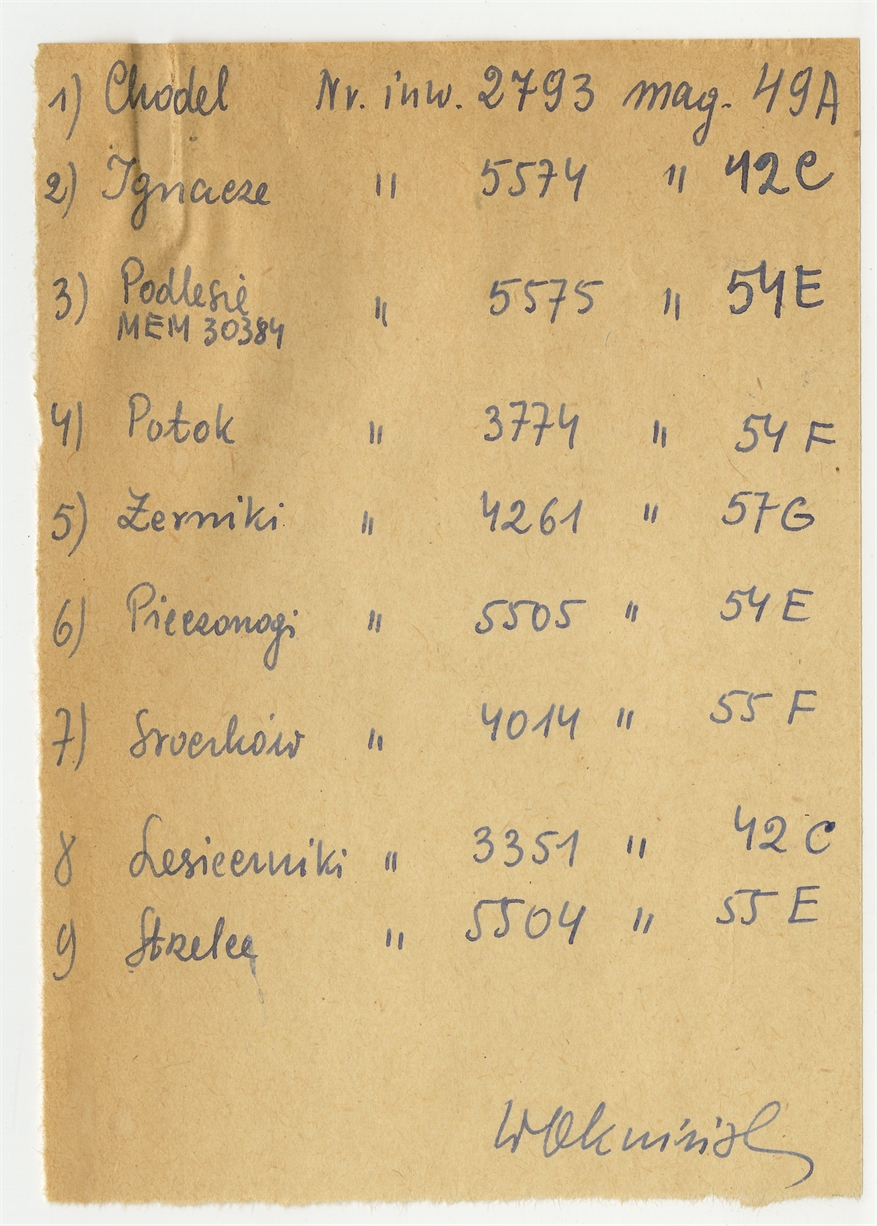 1) Chodel Nr. inw. 2793 mag. 49A
2) Ignacze " 5574 " 42C
3) Podlesie " 5575 " 54E
MEM 30384
4) Potok " 3774 " 54 F
5) Żerniki " 4261 " 57G
6) Pieczonogi " 5505 " 54 E
7) Sroczków " 4014 " 55 F
8 " 3351 " 42 C
9 Strzelce " 5504 " 55 E